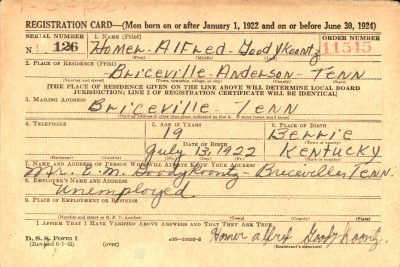 REGISTRATION CARD—(Men born on or after January 1, 1922 and on or before June 30, 1924)
SERIAL NUMBER 1. NAME (Print) ORDER NUMBER
126 Homer - Alfred - Goodykoontz 11545
(First) (Middle) (Last)
2. PLACE OF RESIDENCE (Print)
Briceville - Anderson - Tenn
(Number and street) (Town, township, village, or city) (County) (State)
[THE PLACE OF RESIDENCE GIVEN ON THE LINE ABOVE WILL DETERMINE LOCAL BOARD
JURISDICTION; LINE 2 OF REGISTRATION CERTIFICATE WILL BE IDENTICAL]
3. MAILING ADDRESS
Briceville Tenn
[Mailing address if other than place indicated on line 2. If same insert word same]
4. TELEPHONE 5. AGE IN YEARS 6. PLACE OF BIRTH
19 Berrie
DATE OF BIRTH (Town or county)
July 13, 1922 Kentucky
(Exchange) (Number) (Mo.) (Day) (Yr.) (State or country)
7. NAME AND ADDRESS OF PERSON WHO WILL ALWAYS KNOW YOUR ADDRESS
Mr. E. M. Goodykoontz - Briceville, Tenn.
8. EMPLOYER'S NAME AND ADDRESS
Unemployed
9. PLACE OF EMPLOYMENT OR BUSINESS
(Number and street or R. F. D. number) (Town) (County) (State)
I AFFIRM THAT I HAVE VERIFIED ABOVE ANSWERS AND THAT THEY ARE TRUE.
D. S. S. Form 1
(Revised 6-1-42) (over) Homer alfred Goodykoontz
(Registrant's signature)